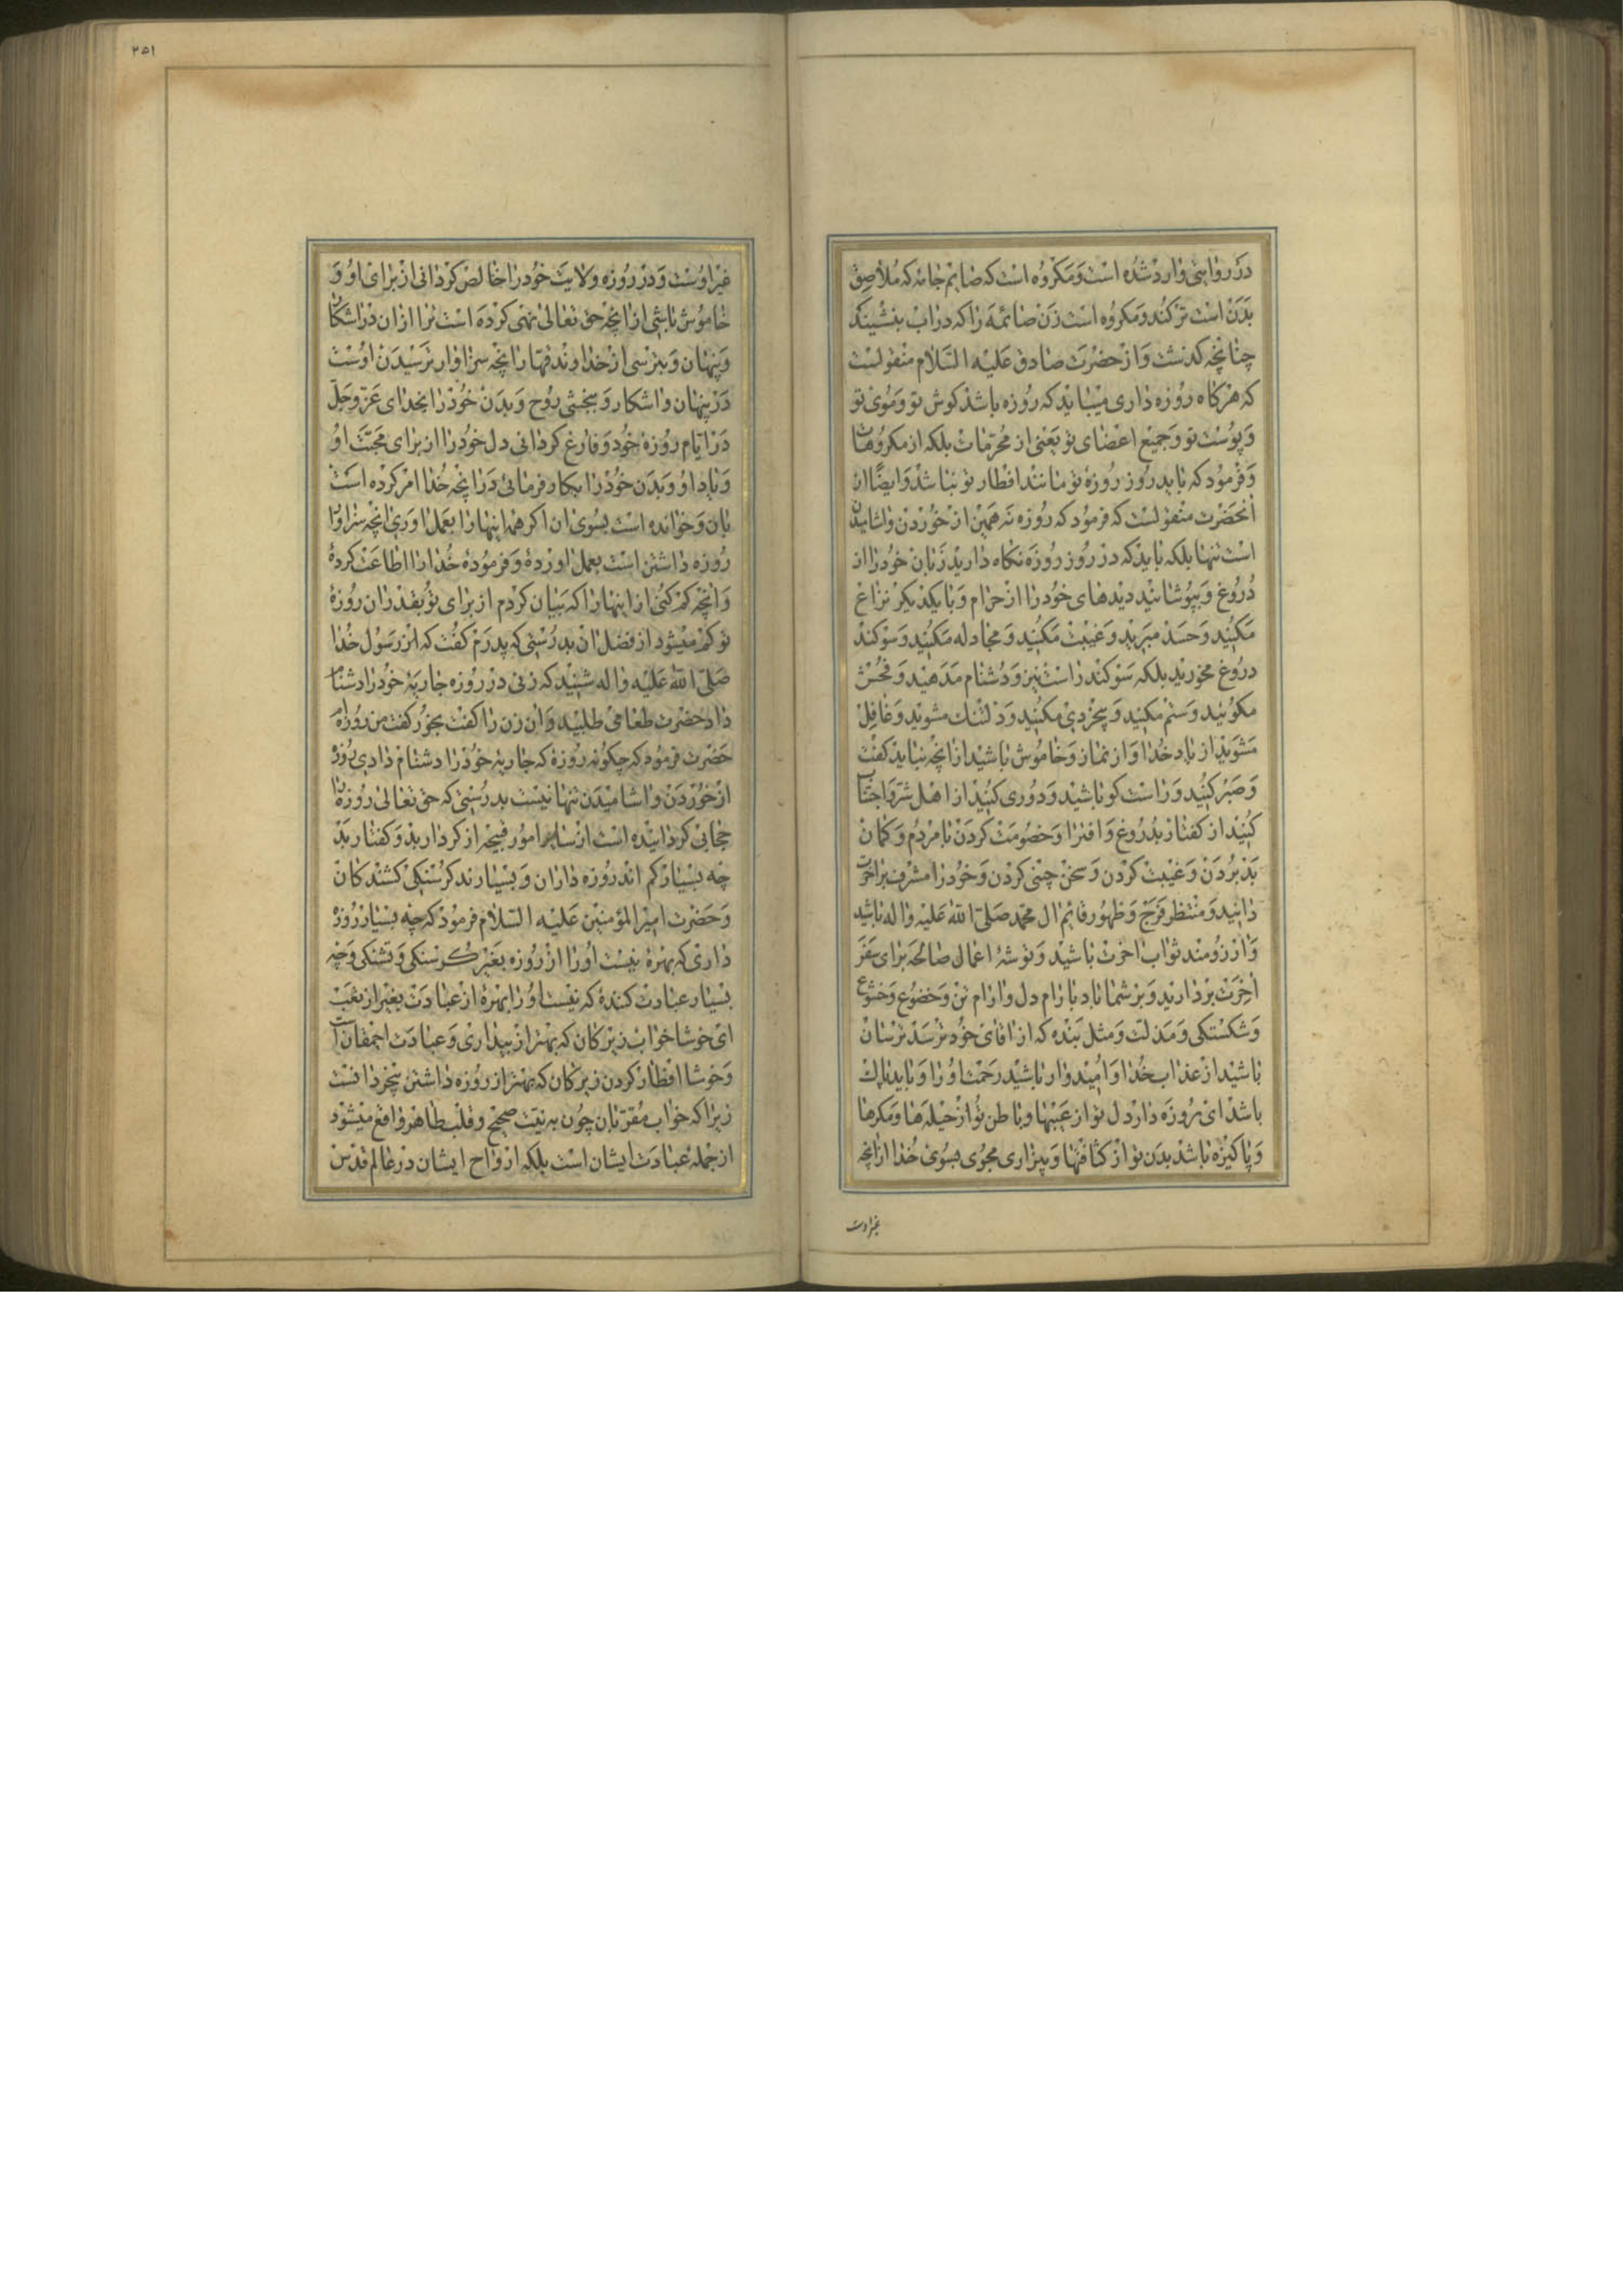 در روایتی وارد شده است و مکروه است که صایم جامه که ملاصق
بدن است تر کند و مکروه است زن صائمه را که در آب بنشیند
چنانچه کذشت و از حضرت صادق علیه السلام منقولست
که هرکاه روزه داری میباید که روزه باشد کوش تو و موی تو
و پوست تو و جمیع اعضای تو یعنی از محرمات بلکه از مکروهات
و فرمود که باید روز روزهٔ تو مانند افطار تو نباشد و ایضًا از
انحضرت منقولست که فرمود که روزه نه همین از خوردن و اشامیدن
است تنها بلکه باید که در روز روزه نکاه دارید زبان خود را از
دروغ و بپوشانید دیدهای خود را از حرام و با یکدیکر نزاع
مکنید و حسد مبرید و غیبت مکنید و مجادله مکنید و سوکند
دروغ مخورید بلکه سوکند راست نیز و دشنام مدهید و فحش
مکوئید و ستم مکنید و بیخردی مکنید و دلتنک مشوید و غافل
مشوید از یاد خدا و از نماز و خاموش باشید از انچه نباید کفت
و صبر کنید و راست کو باشید و دوری کنید از اهل شر و اجتناب
کنید از کفتار بد و دروغ و افترا و خصومت کردن با مردم و کمان
بد بردن و غیبت کردن و سخن چینی کردن و خود را مشرف بر اخرت
دانید و منتظر فرج و ظهور قائم ال محمد صلی الله علیه و اله باشید
و ارزومند ثواب اخرت باشید و توشهٔ اعمال صالحه برای سفر
اخرت بردارید و بر شما باد بارام دل و ارام تن و خضوع و خشوع
و شکستکی و مذلت و مثل بنده که از اقای خود ترسد ترسان
باشید از عذاب خدا و امیدوار باشید رحمت او را و باید پاک
باشد ای روزه دار دل تو از عیبها و باطن تو از حیلهها و مکرها
و پاکیزه باشد بدن تو از کثافتها و بیزاری مجوی بسوی خدا از انچه
غیر اوست
۲۵۱
غیر اوست و در روزه ولایت خود را خالص کردانی از برای او و
خاموش باشی از انچه حق تعالی نهی کرده است ترا از ان در اشکار
و پنهان و بترسی از خداوند قهار انچه سزاوار ترسیدن اوست
در پنهان و اشکار و ببخشی روح و بدن خود را بخدای عز و جل
در ایام روزهٔ خود و فارغ کردانی دل خود را از برای محبت او
و یاد او و بدن خود را بکار فرمائی در انچه خدا امر کرده است
بان و خوانده است بسوی ان اکر همه اینها را بعمل اوری انچه سزاوار
روزه داشتن است بعمل اوردهٔ و فرمودهٔ خدا را اطاعت کردهٔ
و انچه کم کنی از اینها را که بیان کردم از برای تو بقدر ان روزهٔ
تو کم میشود از فضل ان بدرستی که پدرم کفت که رسول خدا
صلی الله علیه و اله شنید که زنی در روزه جاریه خود را دشنام
داد حضرت طعامی طلبید و ان زن را کفت بخور کفت من روزه‌ام
حضرت فرمود که چکونه روزهٔ که جاریه خود را دشنام دادی روزه
از خوردن و اشامیدن تنها نیست بدرستی که حق تعالی روزه را
حجابی کردانیده است از سایر امور قبیحه از کردار بد و کفتار بد
چه بسیار کم اند روزه داران و بسیارند کرسنکی کشند کان
و حضرت امیر المؤمنین علیه السلام فرمود که چه بسیار روزه
داری که بهرهٔ نیست او را از روزه بغیر کرسنکی و تشنکی و چه
بسیار عبادت کنندهٔ که نیست او را بهرهٔ از عبادت بغیر از تعب
ای خوشا خواب زیرکان که بهتر از بیداری و عبادت احمقان است
و خوشا افطار کردن زیرکان که بهتر از روزه داشتن بیخردانست
زیرا که خواب مقربان چون به نیت صحیح و قلب طاهر واقع میشود
از جمله عبادت ایشان است بلکه ارواح ایشان در عالم قدس